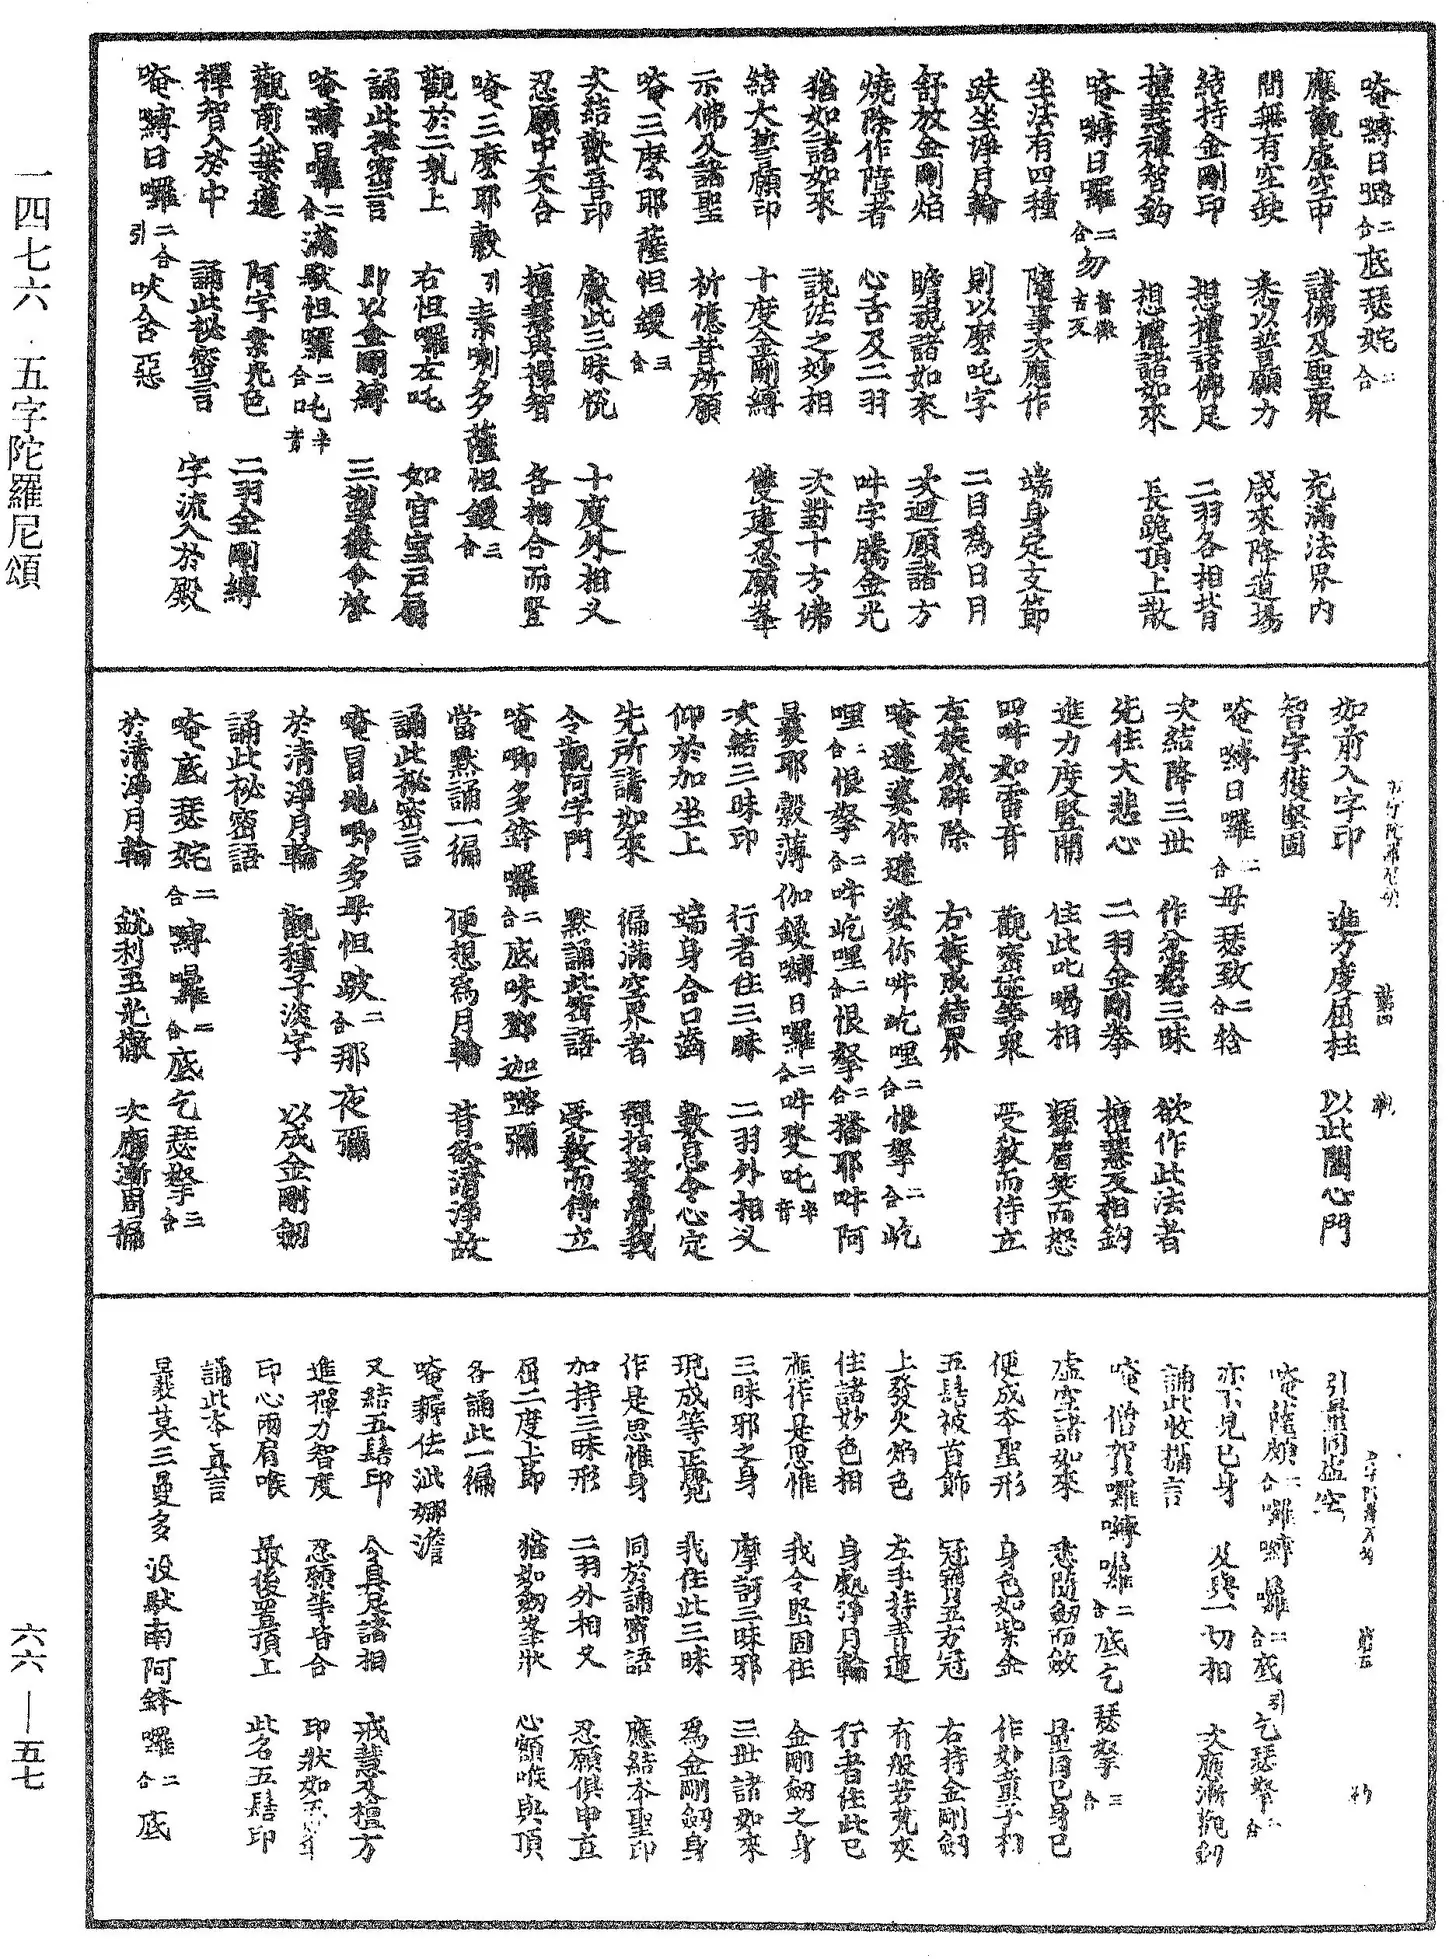 一四七六　五字陀羅尼頌
六六—五七
唵嚩日路二合底瑟姹二合
應觀虛空中　諸佛及聖眾　充滿法界內
間無有空缺　悉以普願力　咸來降道場
結持金剛印　想禮諸佛足　二羽各相背
檀慧禪智鈎　想禮諸如來　長跪頂上散
唵嚩日囉二合勿微一音吉反
坐法有四種　隨事次應作　端身定支節
趺坐淨月輪　則以麼吒字　二目為日月
舒放金剛焰　瞻視諸如來　次迴顧諸方
燒除作障者　心舌及二羽　吽字騰金光
猶如諸如來　說法之妙相　次對十方佛
結大誓願印　十度金剛縛　雙建忍願峯
示佛及諸聖　祈憶昔所願
唵三麼耶薩怛鑁三合
次結歡喜印　獻此三昧悅　十度外相叉
忍願中交合　檀慧與禪智　各相合而豎
唵三麼耶縠引素喇多薩怛鑁三合
觀於二乳上　右怛囉左吒　如宮室戶扇
誦此祕密言　即以金剛縛　三掣撥令啟
唵嚩日囉二合滿馱怛囉二合吒半音
觀前八葉蓮　阿字素光色　二羽金剛縛
禪智入於中　誦此祕密言　字流入於殿
唵嚩日囉二合引吠舍惡
如前入字印　進力度屈柱　以此闔心門
智字獲堅固
唵嚩日囉二合母瑟致二合㤉
次結降三世　作忿怒三昧　欲作此法者
先住大悲心　二羽金剛拳　檀慧反相鈎
進力度豎開　住此叱喝相　顰眉笑而怒
四吽如雷音　觀密跡等眾　受教而侍立
左旋成辟除　右旋成結界
唵遜婆你遜婆你吽屹哩二合恨拏二合屹
哩二合恨拏二合吽屹哩二合恨拏二合播耶吽阿
曩耶縠薄伽鑁嚩日囉二合吽癹吒半音
次結三昧印　行者住三昧　二羽外相叉
仰於加坐上　端身合口齒　數息令心定
先所請如來　徧滿空界者　彈指警覺我
令觀阿字門　默誦此密語　受教而侍立
唵唧多鉢囉二合底味鄧迦嚕彌
當默誦一徧　便想為月輪　音欲清淨故
誦此祕密言
唵冒地唧多母怛跛二合那夜彌
於清淨月輪　觀種子淡字　以成金剛劒
誦此祕密語
唵底瑟姹二合嚩囉二合底乞瑟拏三合
於清淨月輪　銳利玉光徹　次應漸周徧
引量同虛空
唵薩頗二合囉嚩囉二合底引乞瑟拏二合
亦不見己身　及與一切相　次應漸觀劒
誦此收攝言
唵僧賀囉嚩囉二合底乞瑟拏三合
虛空諸如來　悉隨劒而斂　量同己身已
便成本聖形　身色如紫金　作妙童子相
五髻被首飾　冠𭀚五方冠　右持金剛劒
上發火焰色　左手持青蓮　有般若梵夾
住諸妙色相　身處淨月輪　行者住此已
應作是思惟　我今堅固住　金剛劒之身
三昧耶之身　摩訶三昧耶　三世諸如來
現成等正覺　我住此三昧　為金剛劒身
作是思惟身　同於誦密語　應結本聖印
加持三昧形　二羽外相叉　忍願俱申直
屈二度上節　猶如劒峯狀　心額喉與頂
各誦此一徧
唵耨佉泚娜澹
又結五髻印　令具足諸相　戒慧及檀方
進禪力智度　忍願等皆合　印狀如
印心兩肩喉　最後置頂上　此名五髻印
誦此本真言
曩莫三曼多沒馱南阿鉢囉二合底